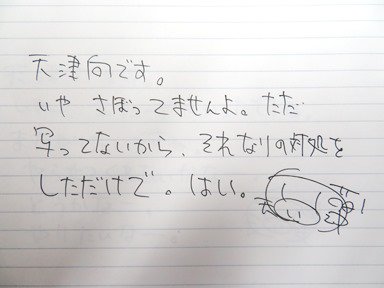 天津向です。
いや さぼってませんよ。ただ
写ってないから、それなりの対処を
しただけで。はい。